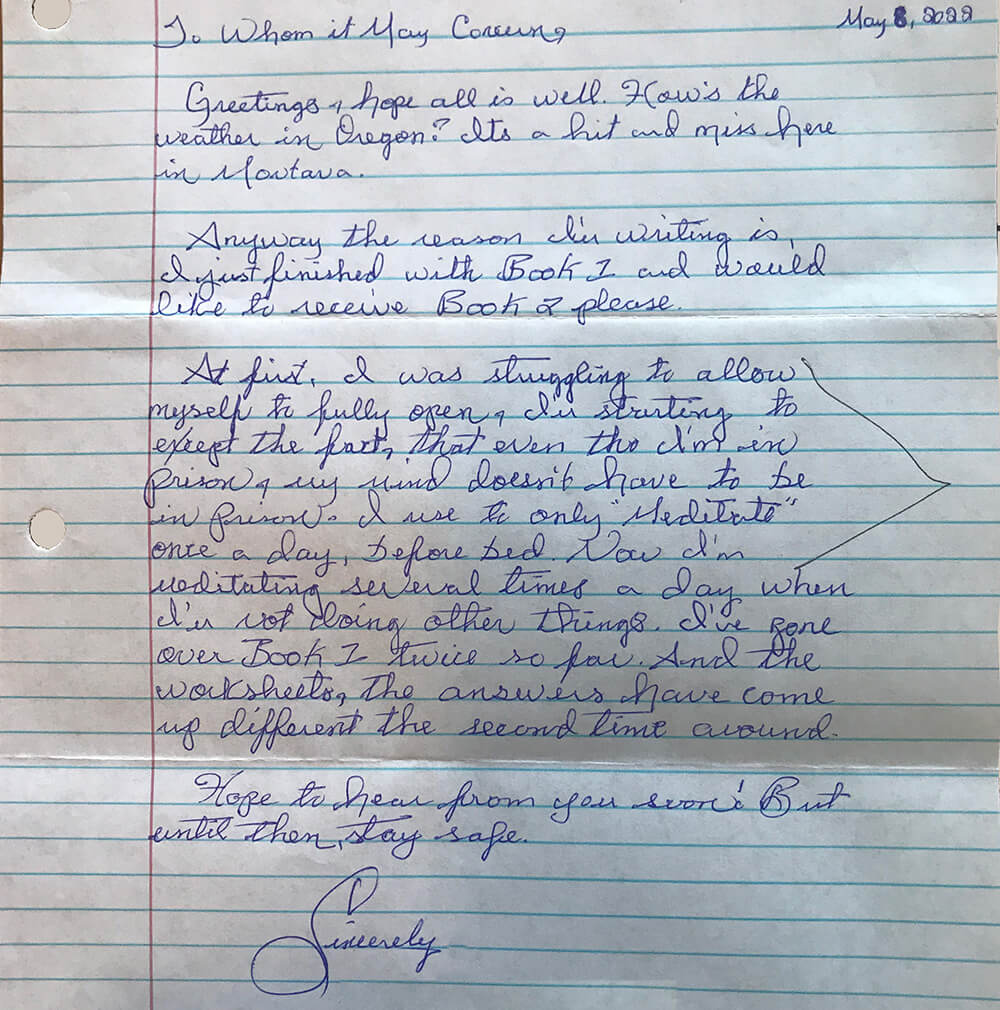 May 8, 2022
To Whom it May Concern,
Greetings, hope all is well. How's the
weather in Oregon? Its a hit and miss here
in Montana.
Anyway the reason I'm writing is,
I just finished with Book 1 and would
like to receive Book 2 please.
At first, I was struggling to allow
myself to fully open, I'm starting to
except the fact, that even tho I'm in
prison, my mind doesn't have to be
in prison. I use to only "Meditate"
once a day, before bed. Now I'm
meditating several times a day when
I'm not doing other things. I've gone
over Book 1 twice so far. And the
worksheets, the answers have come
up different the second time around.
Hope to hear from you soon! But
until then, stay safe.
Sincerely